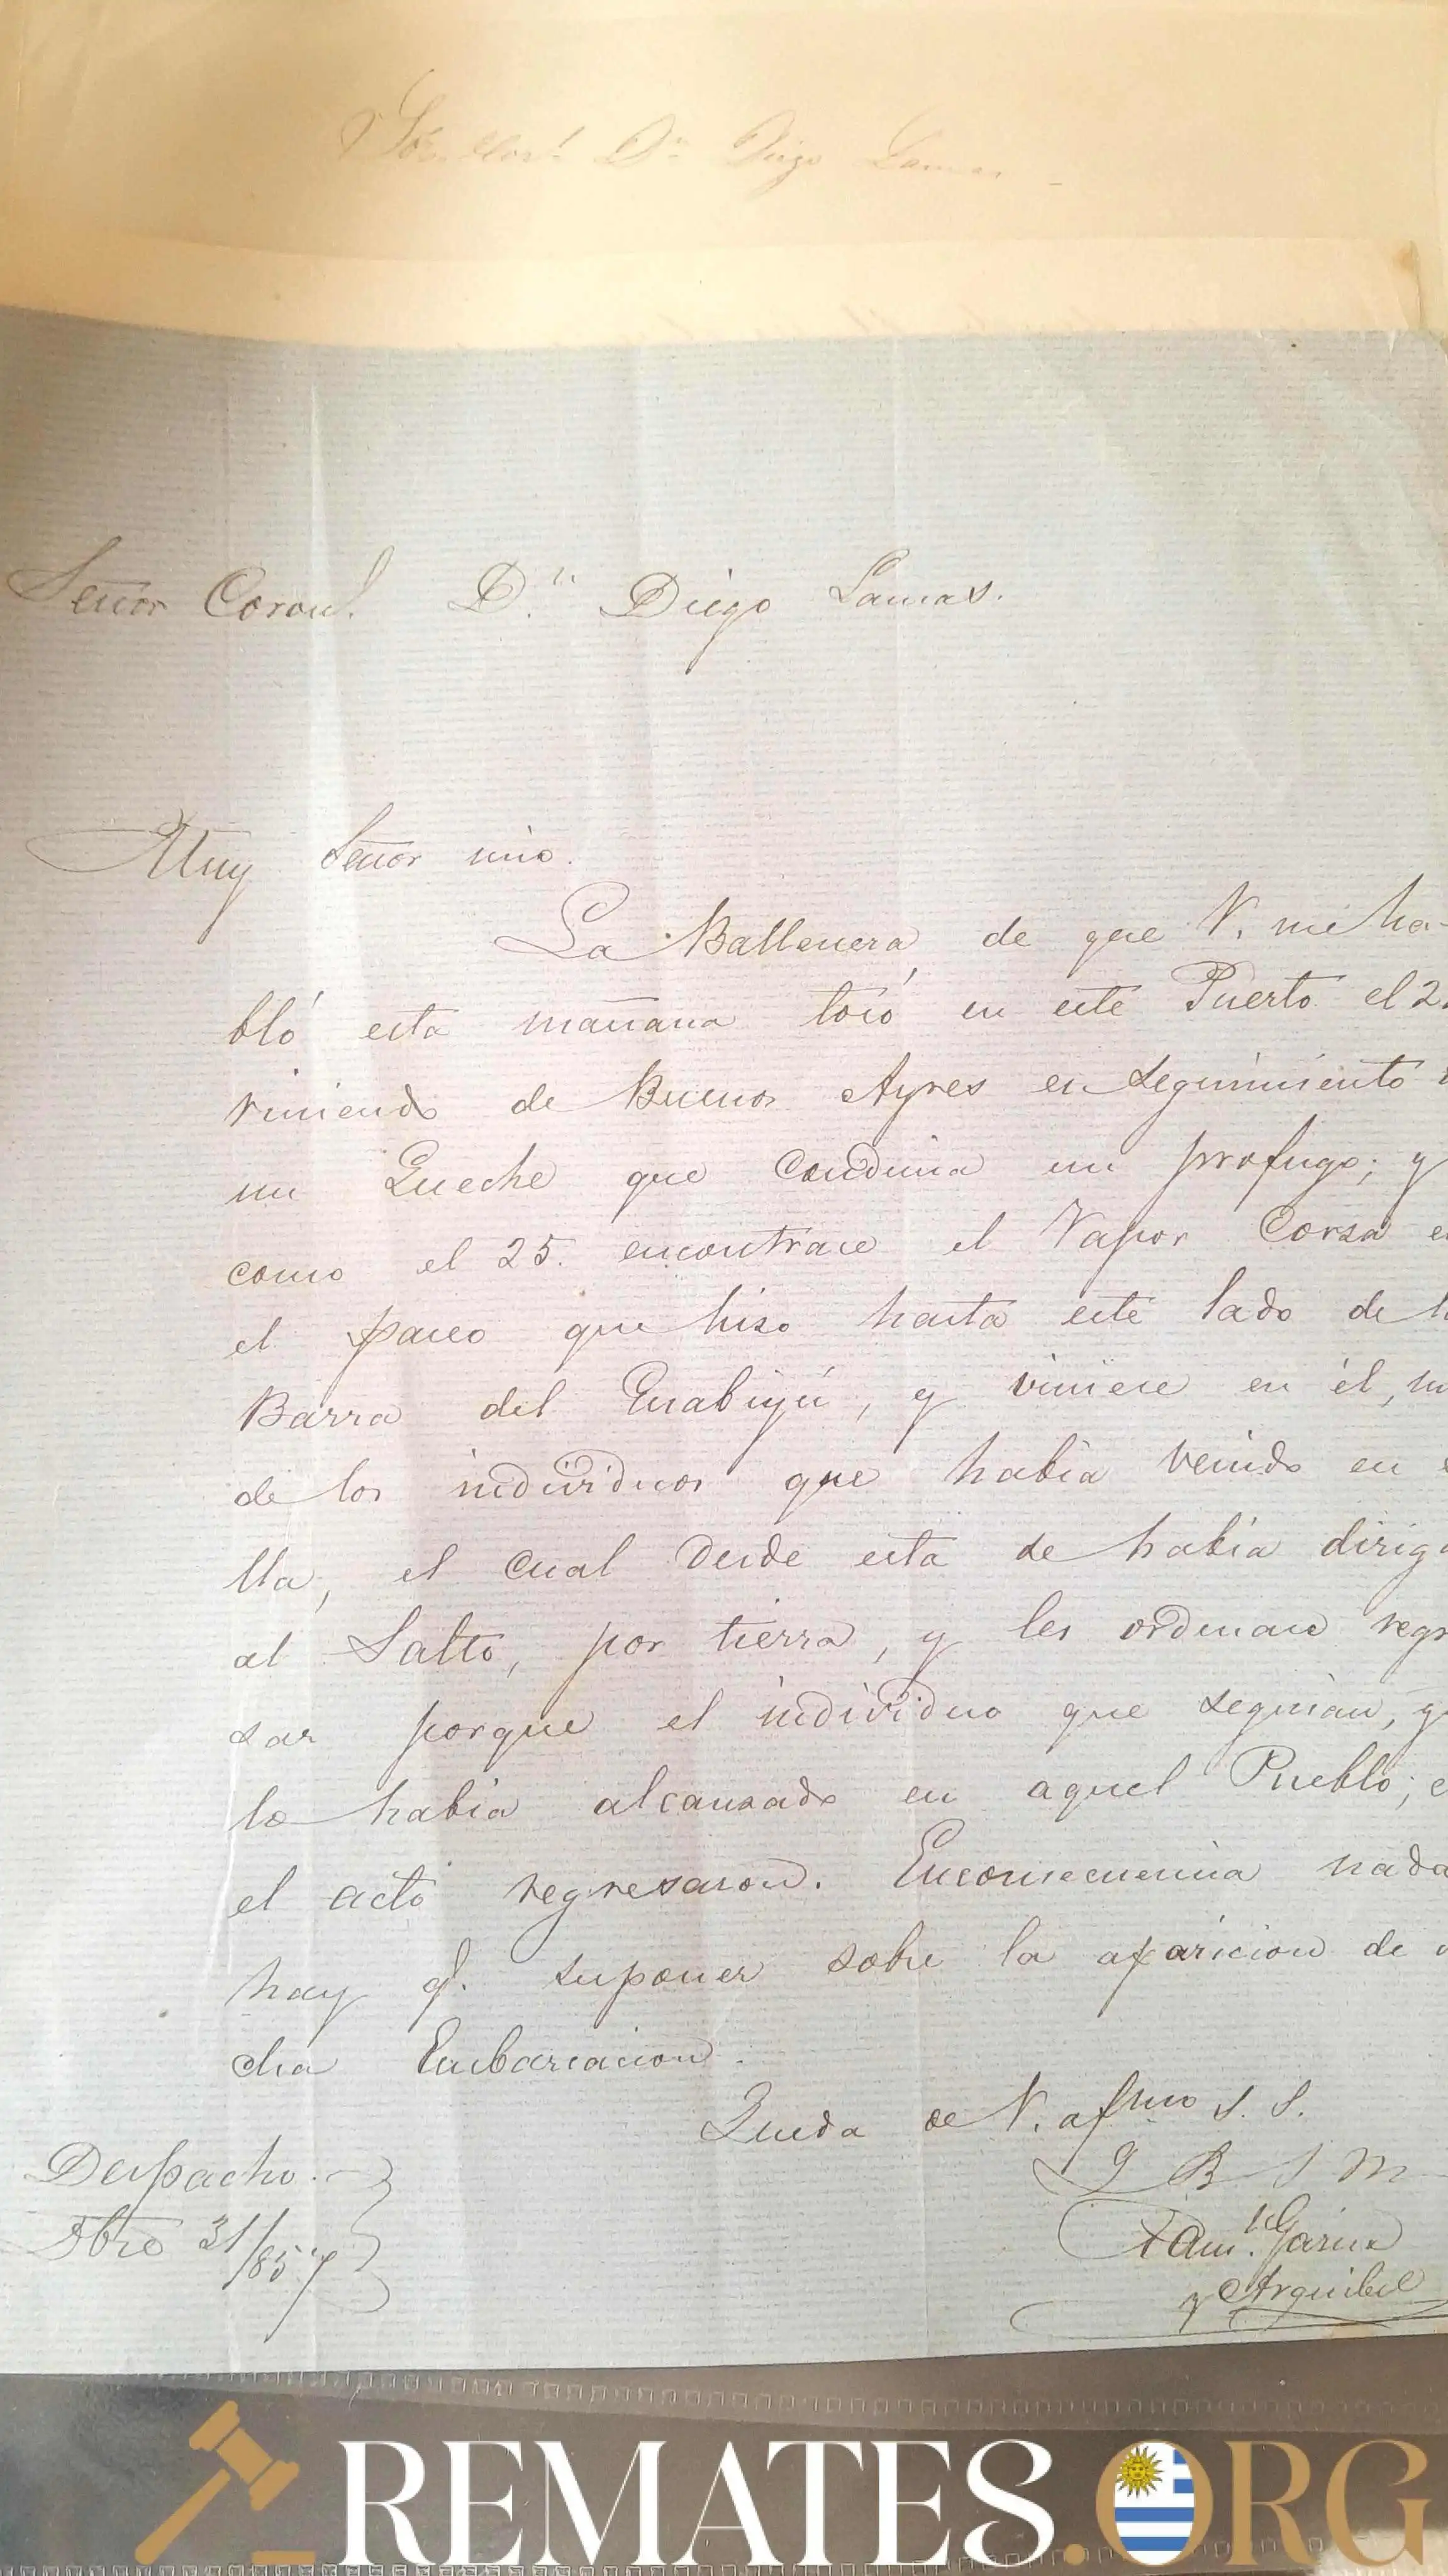 Dn Diego Lamas
Señor Coronl. D.n Diego Lamas.
Muy Señor mio.
La Ballenera de que V. me ha-
bló esta mañana tocó en este Puerto el 2
viniendo de Buenos Ayres en seguimiento
un Queche que conducia un profugo; y
como el 25. encontrase el Vapor Corza e
el paseo que hiso hasta este lado de l
Barra del Guabiyú, y viniese en él, u
de los individuos que habia venido en
lla, el cual desde esta se habia dirig
al Salto, por tierra, y les ordenase regr
sar porque el individuo que seguian, y
lo habia alcansado en aquel Pueblo; e
el acto regresaron. Enconsecuencia nada
hay q.e suponer sobre la aparicion de
cha Embarcacion.
Queda de V. afmo S. S.
Q B S M
Garcia
y Arguibel
Despacho.
8bre 31/857
REMATES.ORG